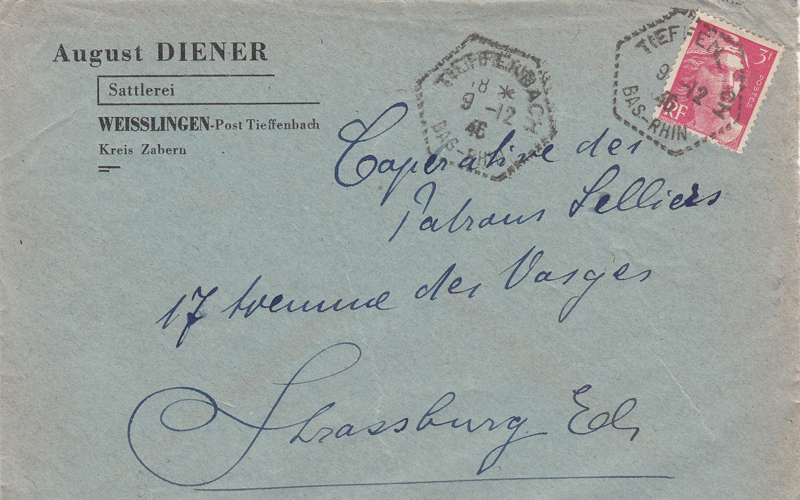 August DIENER
Sattlerei
WEISSLINGEN-Post Tieffenbach
Kreis Zabern
TIEFFENBACH
18 *
9 -12
46
BAS-RHIN
TIEFFENBACH
9 -12
46
BAS-RHIN
3F
POSTES
RF
Coperative des
Patrons Selliers
17 Avenue des Vosges
Strassburg